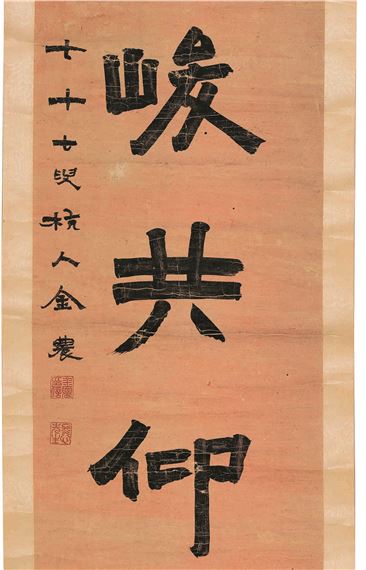 峻共仰
七十七叟杭人金農